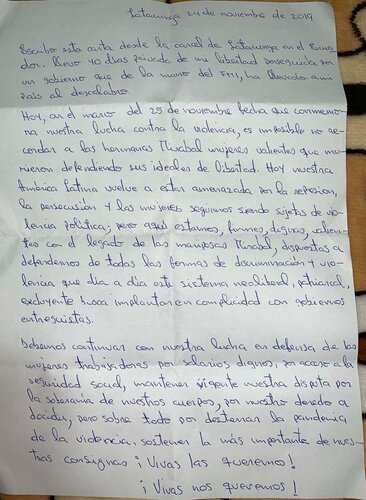 Latacunga 24 de noviembre de 2019
Escribo esta carta desde la carcel de Latacunga en el Ecua
dor, llevo 40 dias privada de mi libertad perseguida por
un gobierno que de la mano del FMI, ha llevado a mi
país al descalabro.
Hoy, en el marco del 25 de noviembre fecha que conmemo
ra nuestra lucha contra la violencia, es imposible no re-
cordar a las hermanas Mirabal mujeres valientes que mu-
rieron defendiendo sus ideales de libertad. Hoy nuestra
América Latina vuelve a estar amenazada por la represion,
la persecusión y las mujeres seguimos siendo sujetas de vio-
lencia politica; pero aquí estamos, firmes, dignas, valien-
tes con el legado de las mariposas Mirabal, dispuestas a
defendernos de todas las formas de discriminación y vio-
lencia que dia a dia este sistema neoliberal, patriarcal,
excluyente busca implantar en complicidad con gobiernos
entreguistas.
Debemos continuar con nuestra lucha en defensa de las
mujeres trabajadoras por salarios dignos, por acceso a la
seguridad social, mantener vigente nuestra disputa por
la soberania de nuestros cuerpos, por nuestro derecho a
decidir, pero sobre todo por desterrar la pandemia
de la violencia, sostener la más importante de nues-
tras consignas ¡ Vivas las queremos !
¡ Vivas nos queremos !